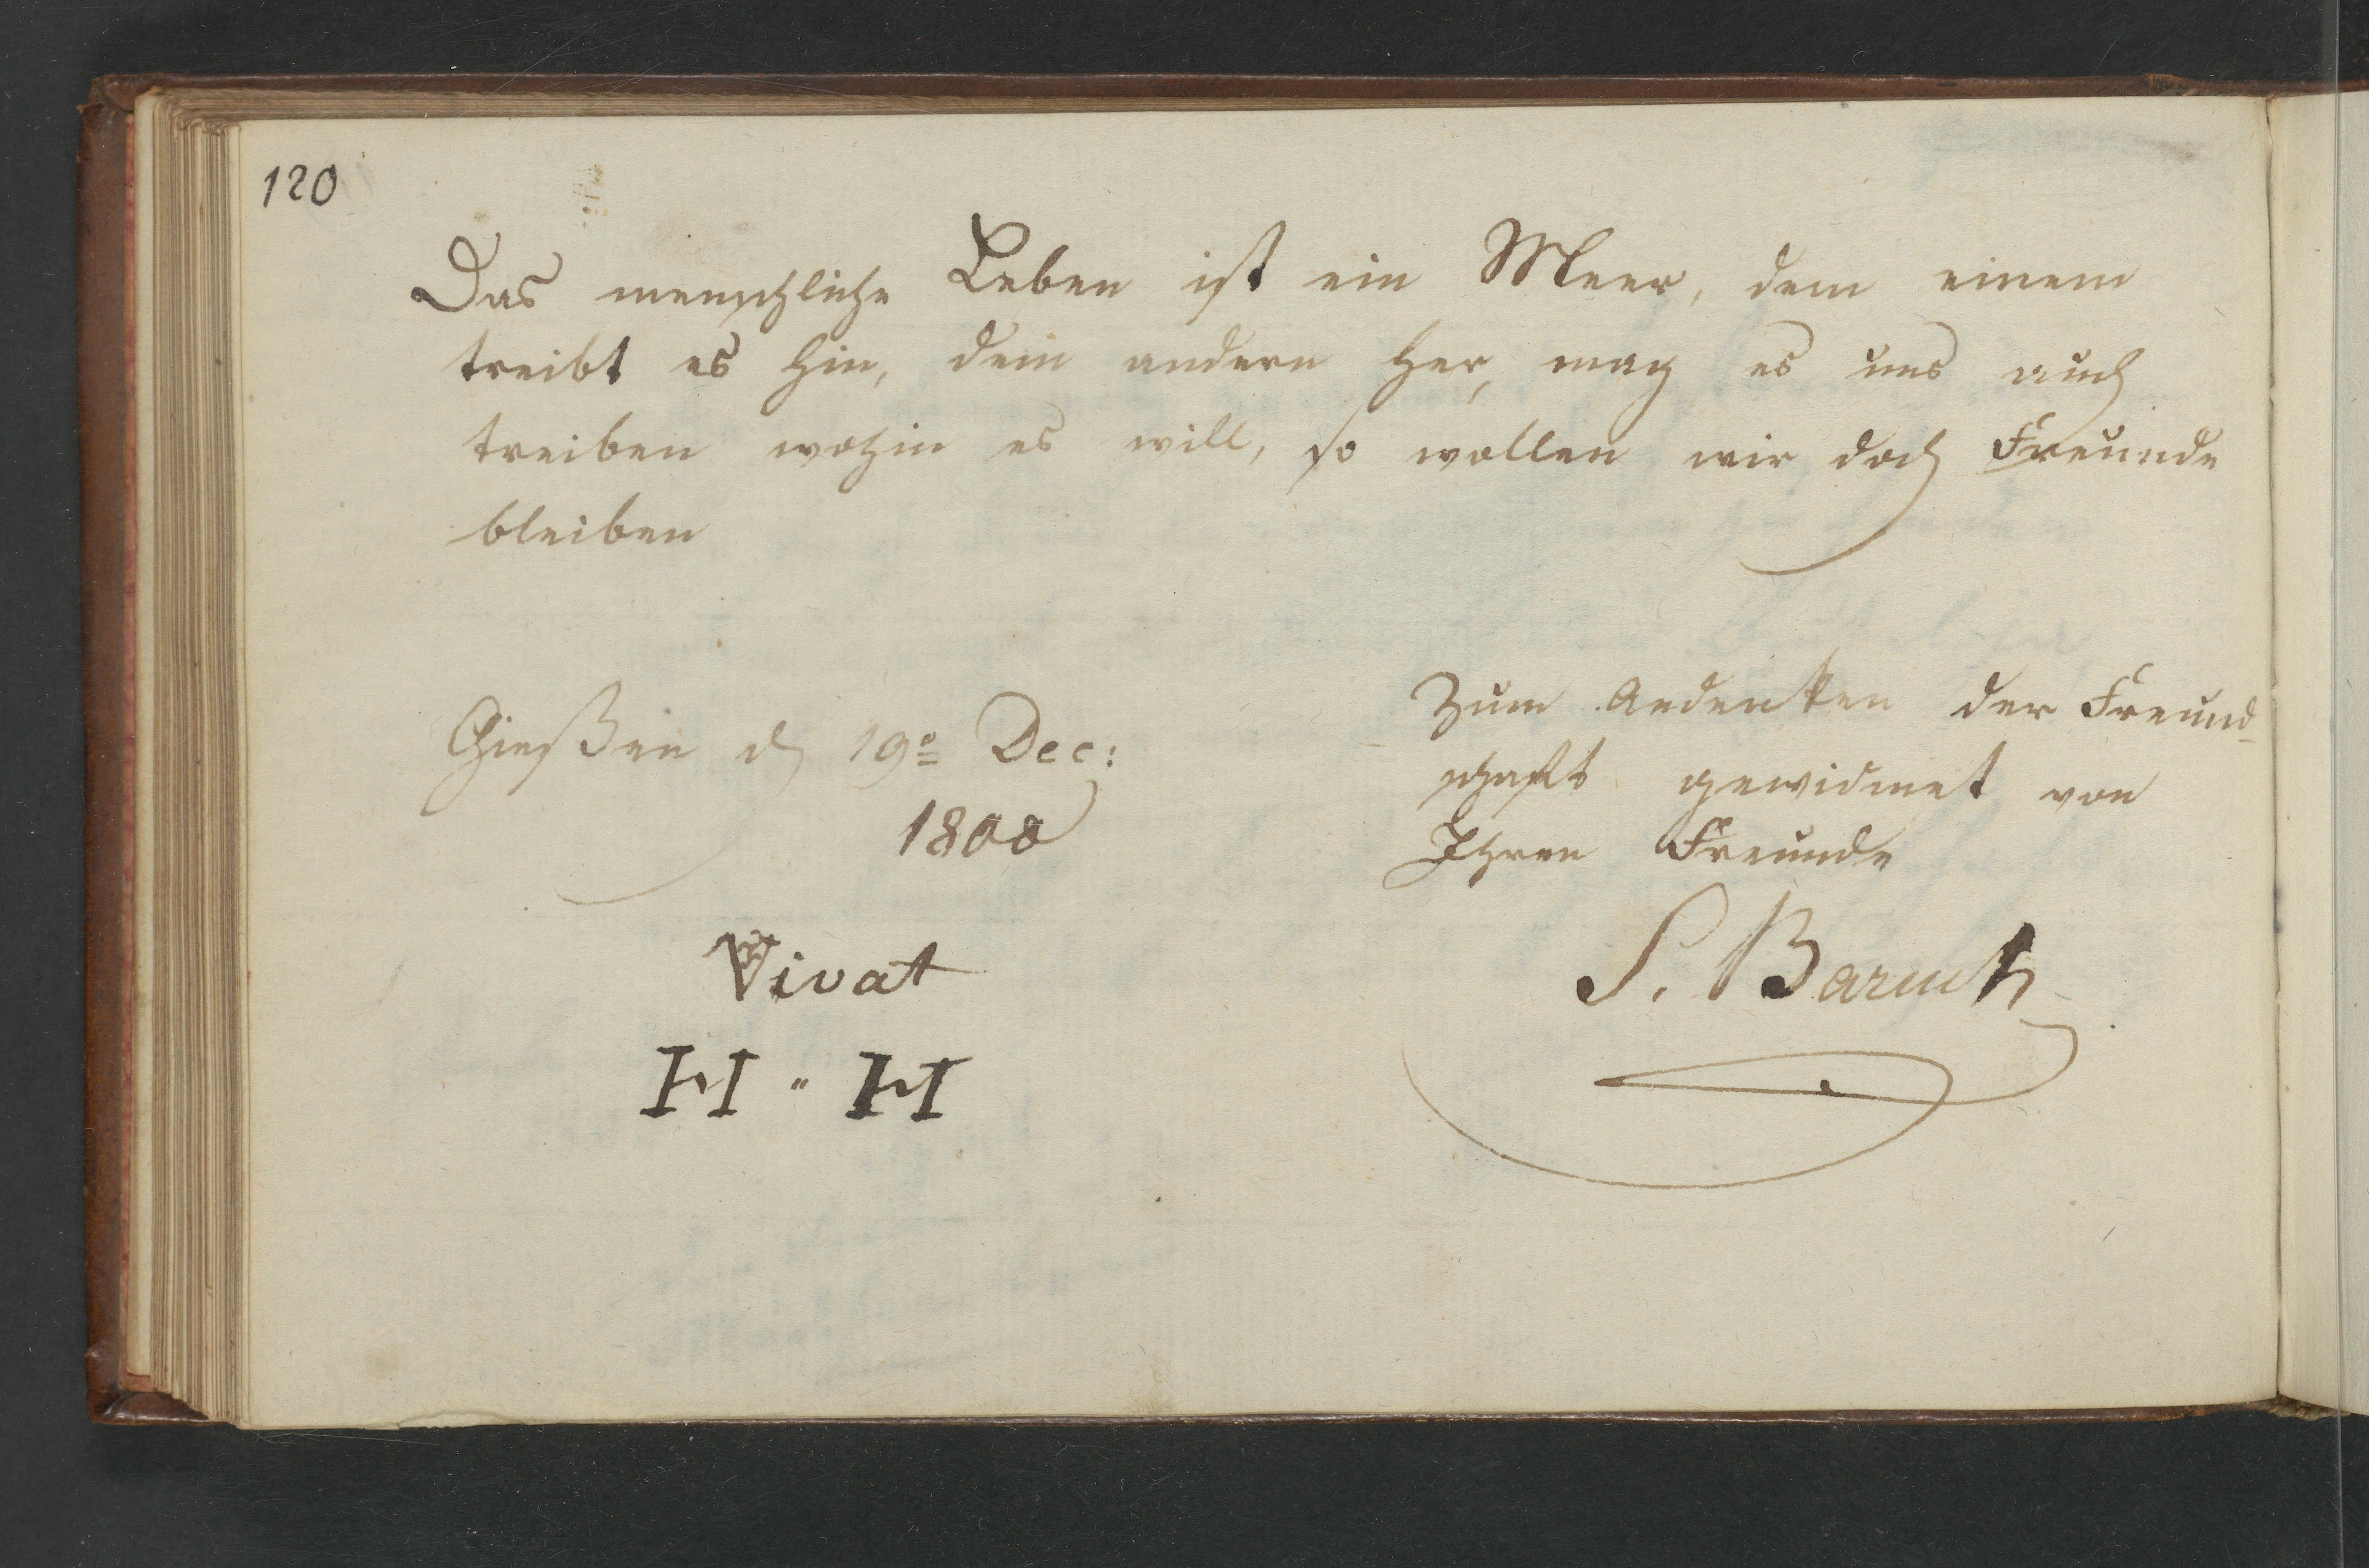 120
Das menschliche Leben ist ein Meer, dem einem
treibt es hin, dem andern her, mag es uns auch
treiben wohin es will, so wollen wir doch Freunde
bleiben
Gießen d 19º Dec:
1800
Vivat
H " H
Zum Andenken der Freund-
schaft gewidmet von
Ihren Freunde
S. Baruch